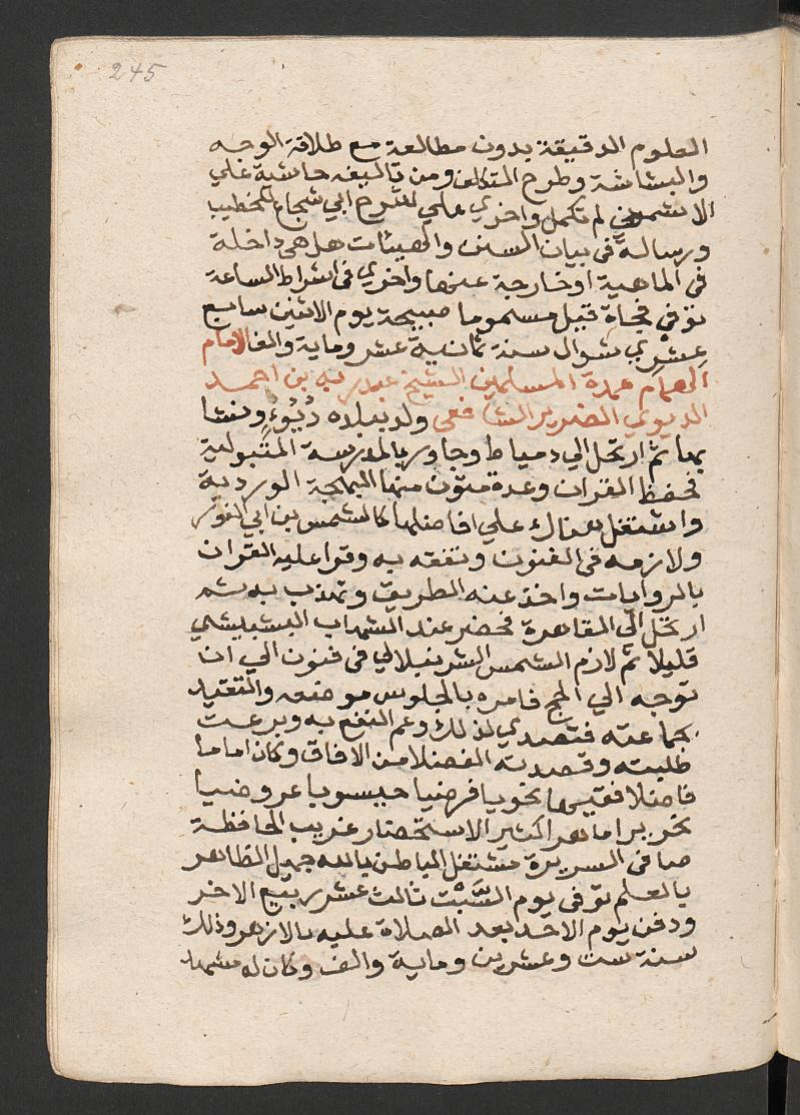 245
العلوم الدقيقة بدون مطالعة مع طلاقة الوجه
والبشاشة وطرح التكلف ومن تاليفه حاشية علي
الاشموني لم تكمل واخري علي شرح ابي شجاع للخطيب
ورسالة في بيان السنن والهيئات هل هي داخلة
في الماهية او خارجة عنها واخري في اشراط الساعة
توفي فجاة قبل مسموما صبيحة يوم الاثنين سابع
عشري شوال سنة ثمانية عشر وماية والف الامام
الهمام عمدة المسلمين الشيخ عبدربه بن احمد
الديوي الضرير الشافعي ولد ببلده ديوء ونشا
بها ثم ارتحل الي دمياط وجاور بالمدرسة المتبولية
فحفظ القران وعدة متون منها البهجة الوردية
واشتغل هناك علي افاضلها كالشمس بن ابي النور
ولازمه في الفنون وتفقه به وقرا عليه القران
بالروايات واخذ عنه الطريق وتهذب به ثم
ارتحل الي القاهرة فحضر عند الشهاب البشبيشي
قليلا ثم لازم الشمس الشرنبلالي في فنون الي ان
توجه الي الحج فامره بالجلوس موضعه والتقيد
بجماعته فتصدي لذلك وعم النفع به وبرعت
طلبته وقصدته الفضلا من الافاق وكان اماما
فاضلا فقيها نحويا فرضيا حيسوبا عروضيا
نحريرا ماهرا كثير الاستحضار غريب الحافظة
صافي السريرة مشتغل الباطن بالله جميل الظاهر
بالعلم توفي يوم السَّبْت ثالث عشر ربيع الاخر
ودفن يوم الاحد بعد الصلاة عليه بالازهر وذلك
سنة ست وعشرين وماية والف وكان له مشهد